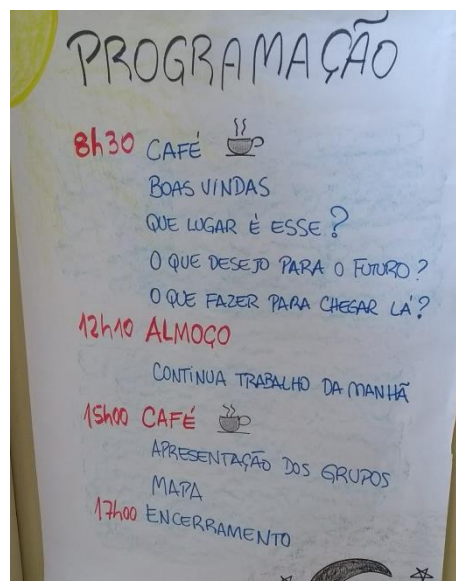 PROGRAMAÇÃO
8h30 CAFÉ
BOAS VINDAS
QUE LUGAR É ESSE?
O QUE DESEJO PARA O FUTURO?
O QUE FAZER PARA CHEGAR LÁ?
12h10 ALMOÇO
CONTINUA TRABALHO DA MANHÃ
15h00 CAFÉ
APRESENTAÇÃO DOS GRUPOS
MAPA
17h00 ENCERRAMENTO